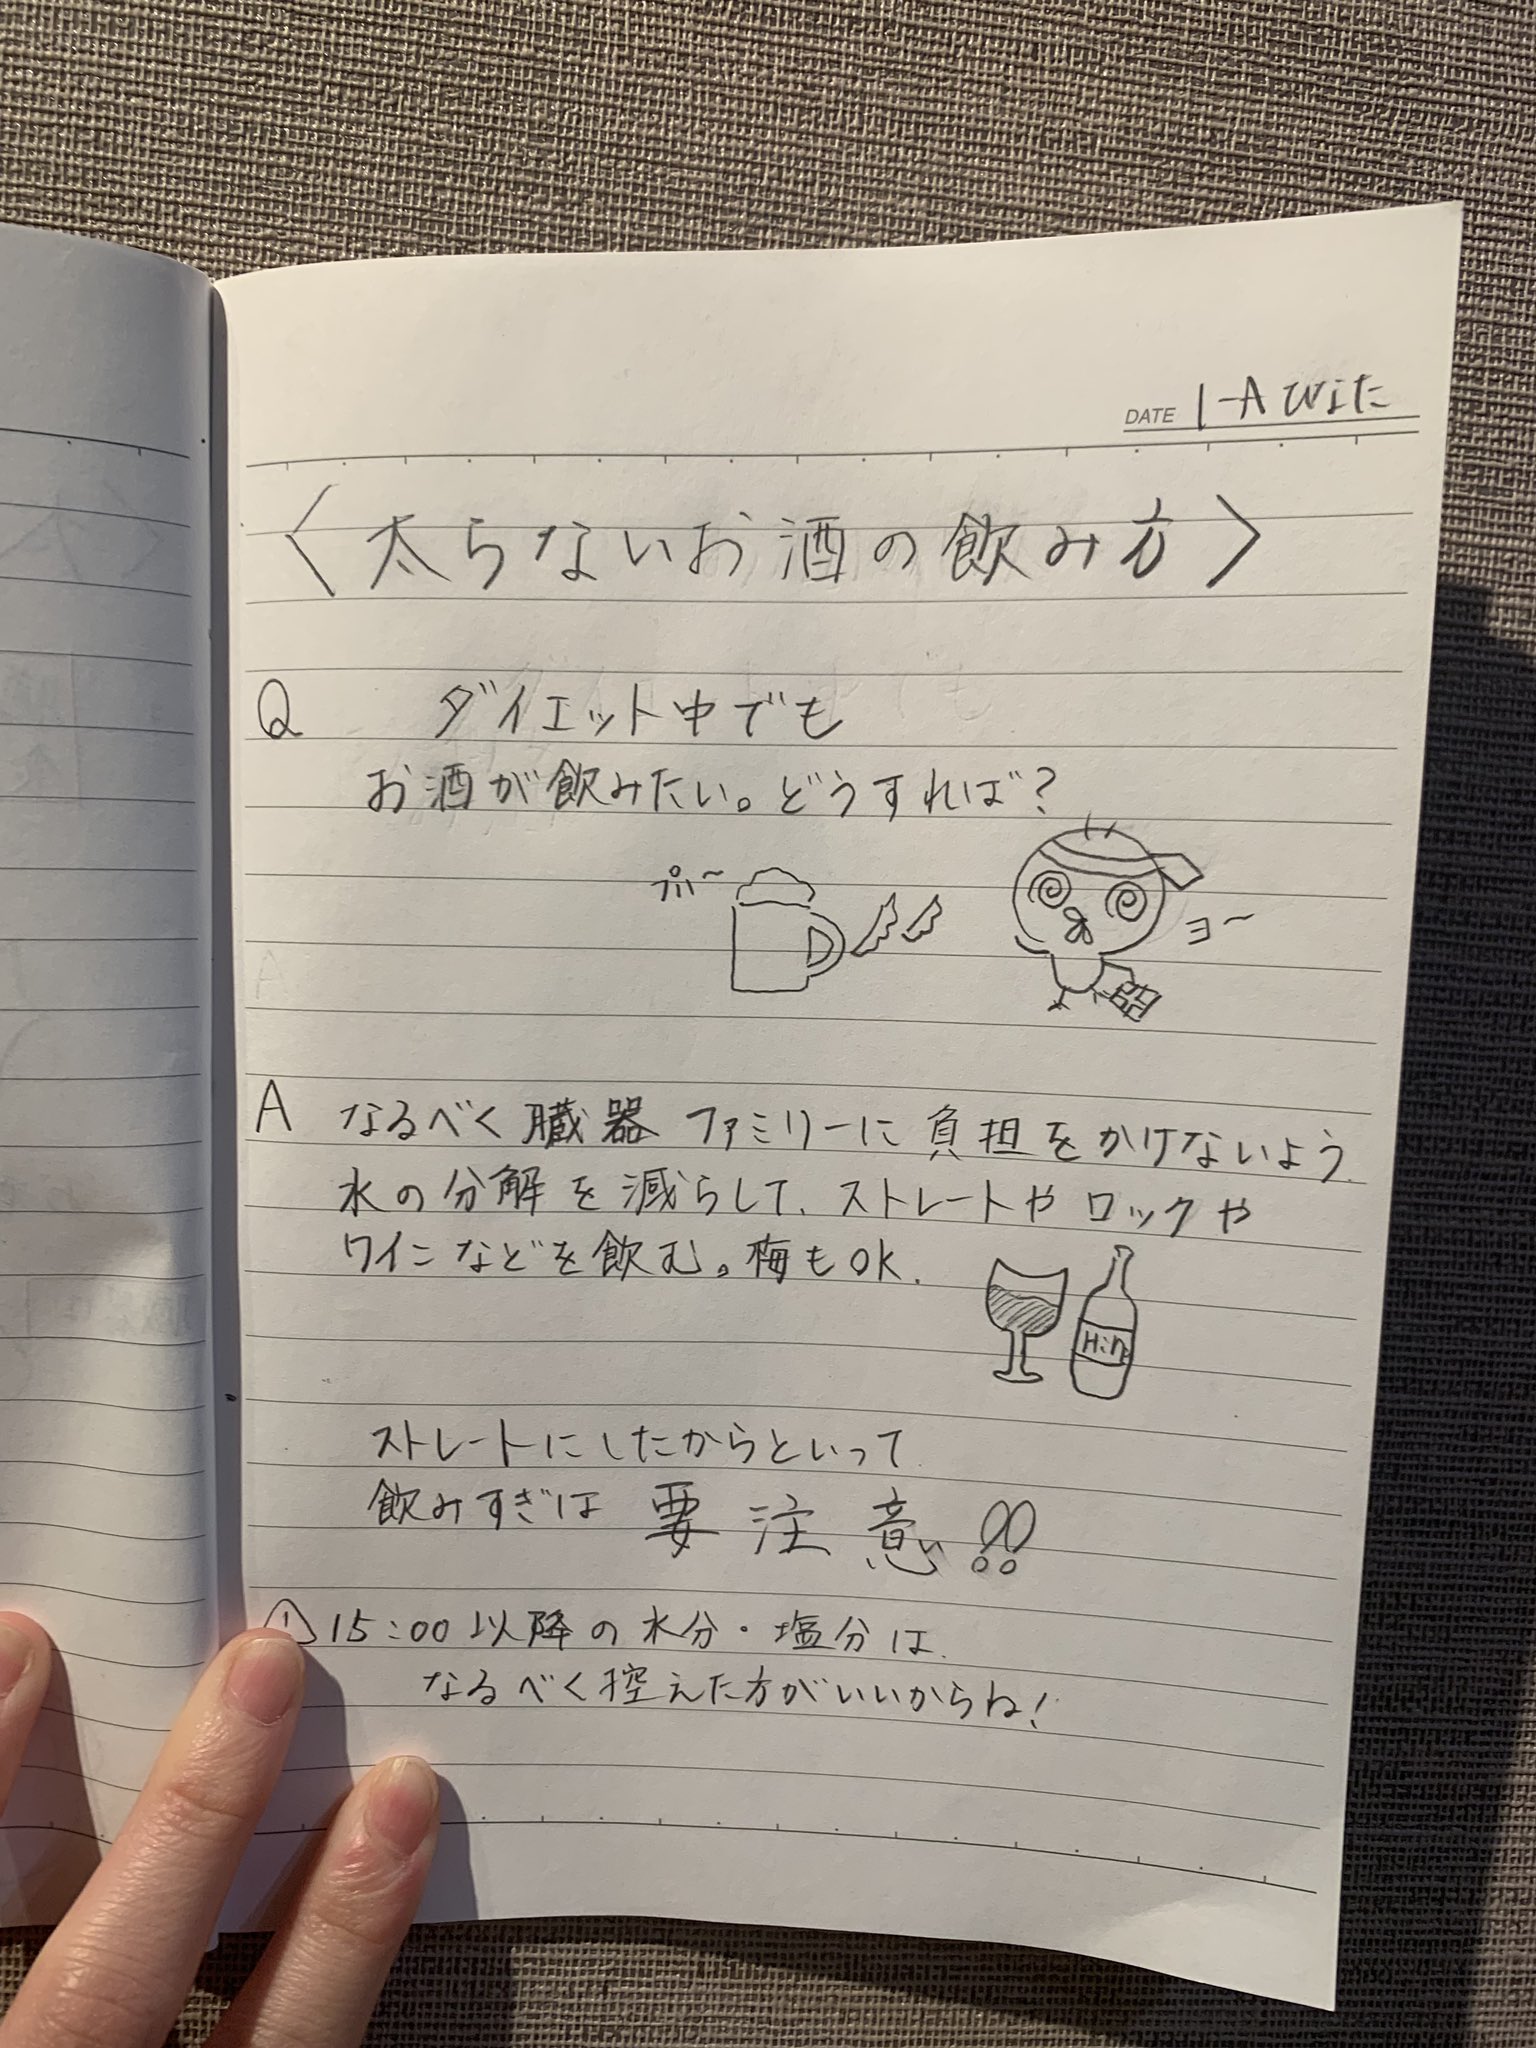 DATE 1-A Wiた
〈太らないお酒の飲み方〉
Q ダイエット中でも
お酒が飲みたい。どうすれば?
プハ〜
ヨ〜
A なるべく臓器ファミリーに負担をかけないよう、
水の分解を減らして、ストレートやロックや
ワインなどを飲む。梅もOK.
ストレートにしたからといって
飲みすぎは 要注意!!
① 15:00以降の水分・塩分は、
なるべく控えた方がいいからね!